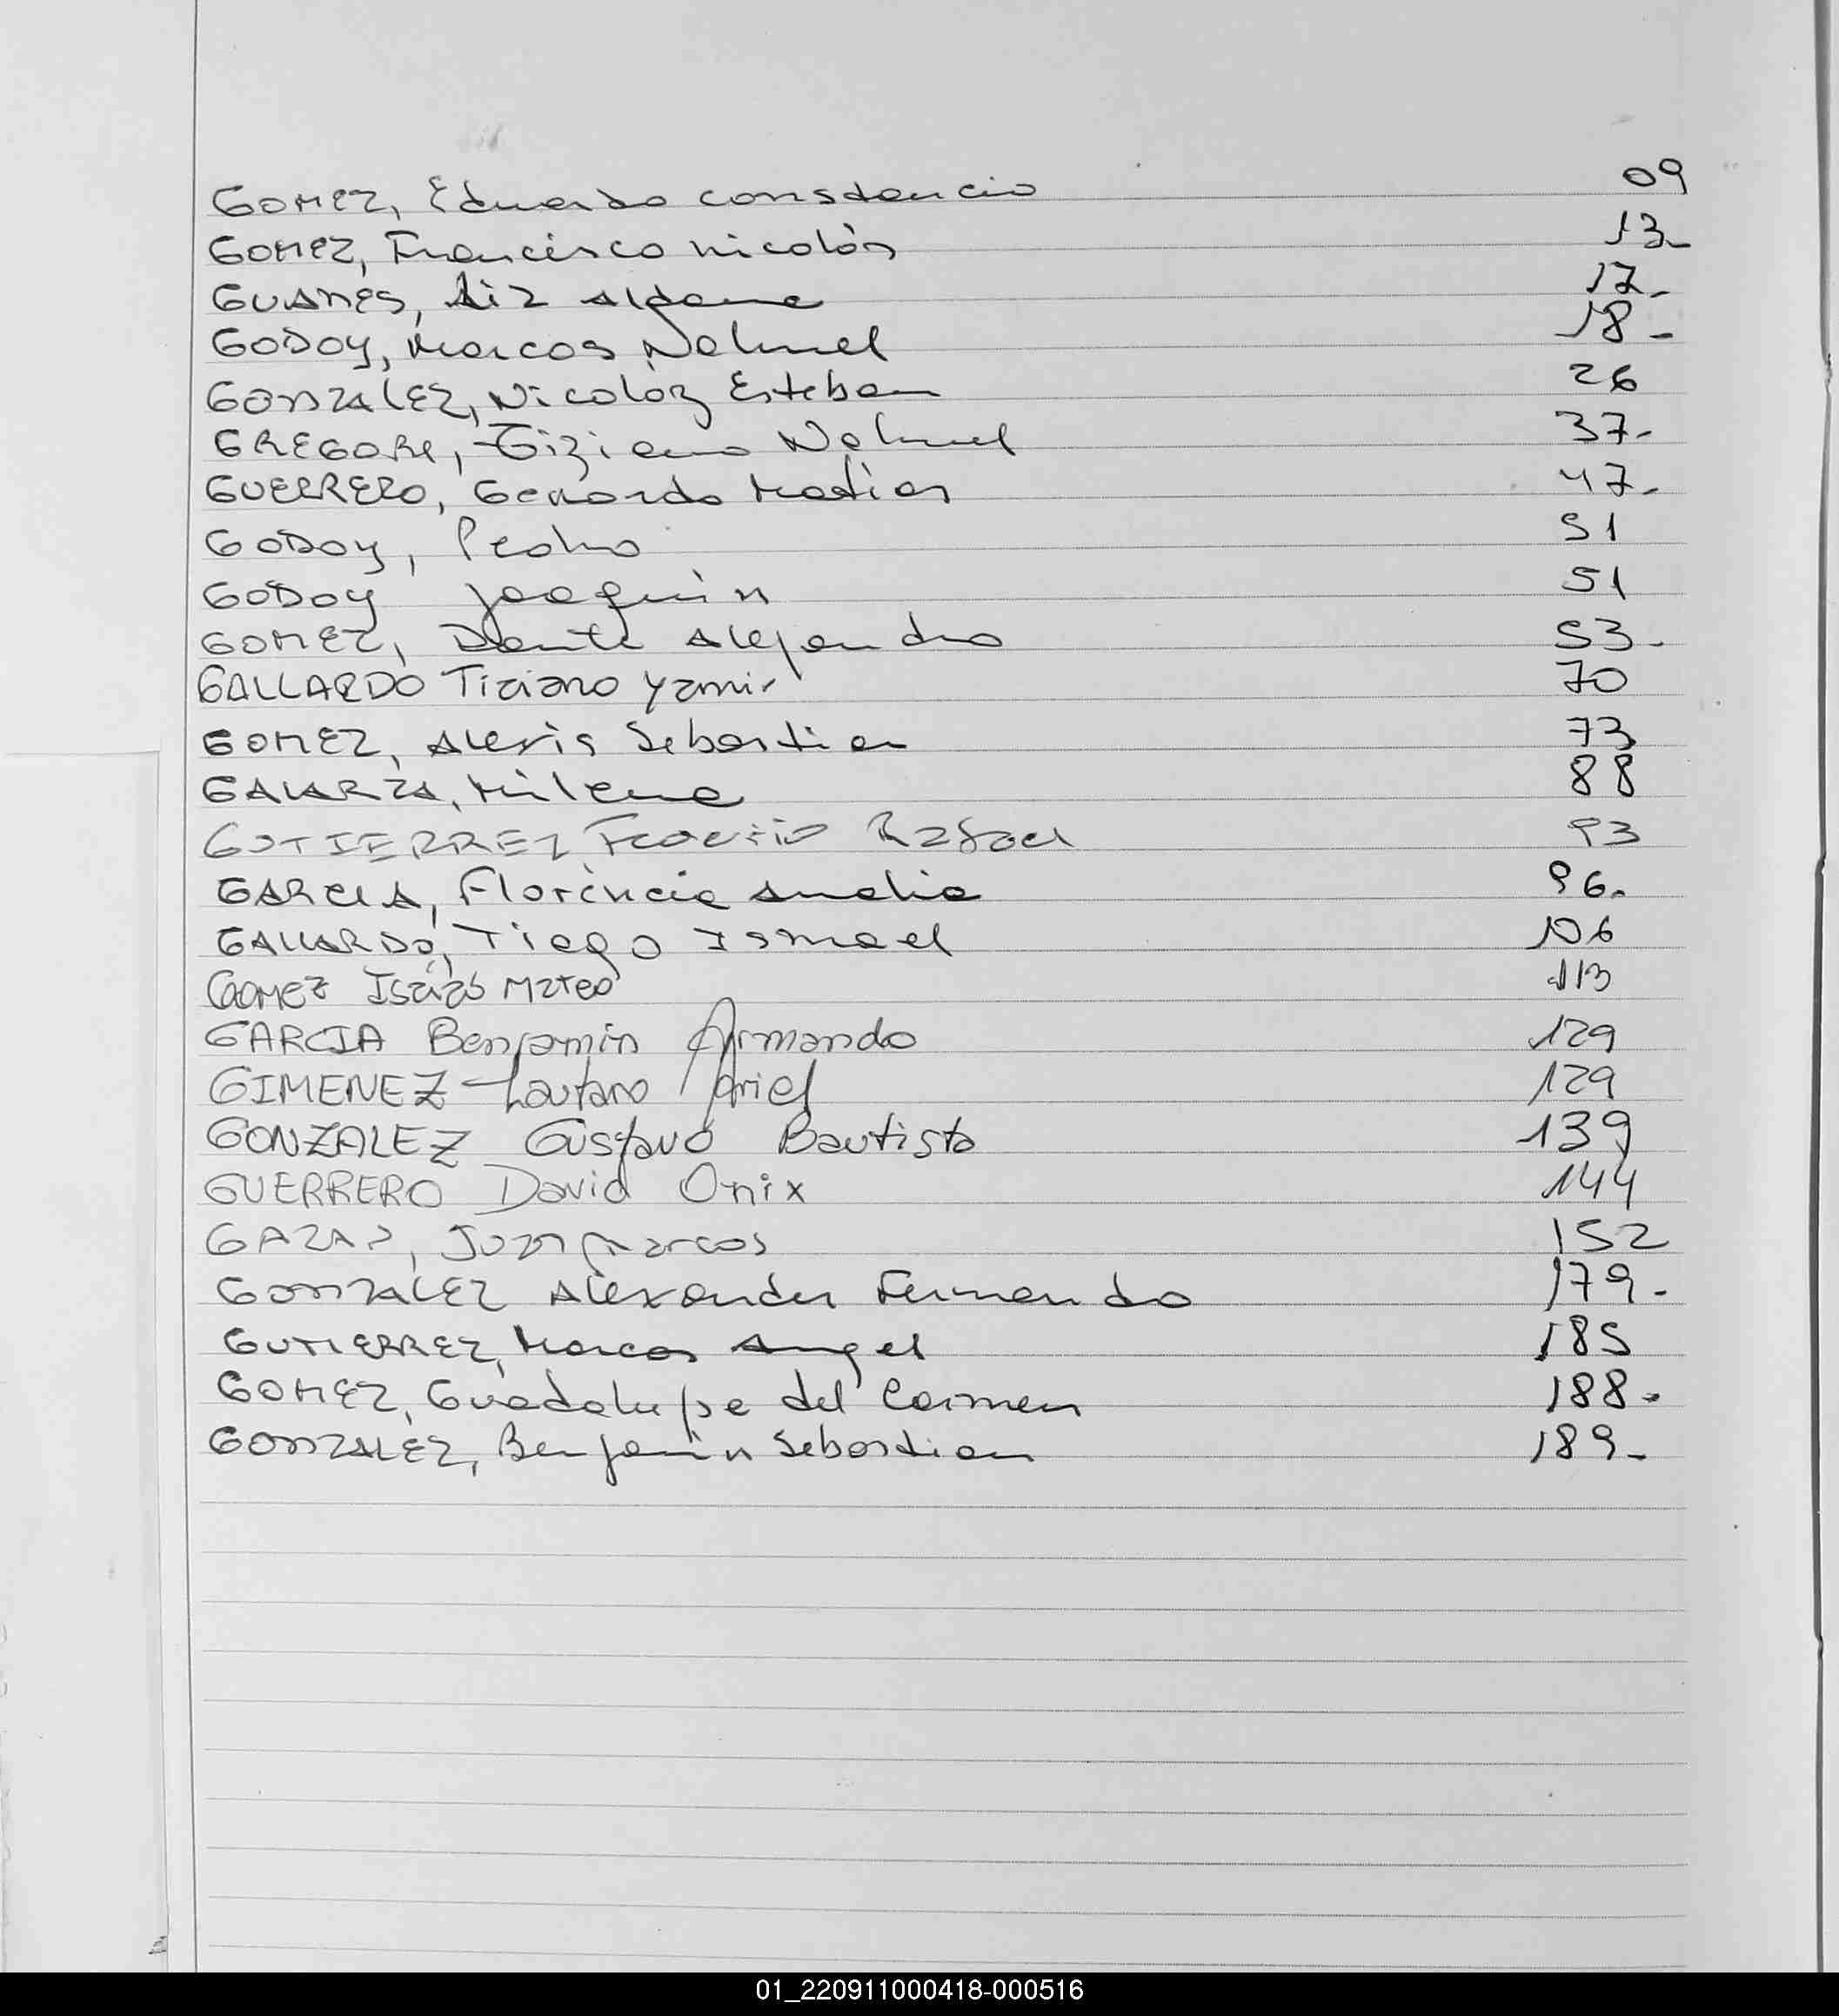 GOMEZ, Eduardo Constancio 09
GOMEZ, Francisco Nicolás 13-
GUANES, Liz Aldana 17-
GODOY, Marcos Nahuel 18-
GONZALEZ, Nicolás Esteban 26
GREGORI, Tiziano Nahuel 37-
GUERRERO, Gerardo Matias 47-
GODOY, Pedro 51
GODOY Joaquin 51
GOMEZ, Dante Alejandro 53-
GALLARDO Tiziano Yamir 70
GOMEZ, Alexis Sebastian 73
GALARZA, Milena 88
GUTIERREZ, Rafael 93
GARCIA, Florencia Amalia 96.
GALLARDO, Tiago Ismael 106
GOMEZ Isaías Mateo 113
GARCIA Benjamin Armando 129
GIMENEZ Lautaro Ariel 129
GONZALEZ Gustavo Bautista 139
GUERRERO David Onix 144
Juan Marcos 152
GONZALEZ Alexander Fernando 179-
GUTIERREZ, Marcos Angel 185
GOMEZ, Guadalupe del Carmen 188-
GONZALEZ, Benjamin Sebastian 189-
01_220911000418-000516